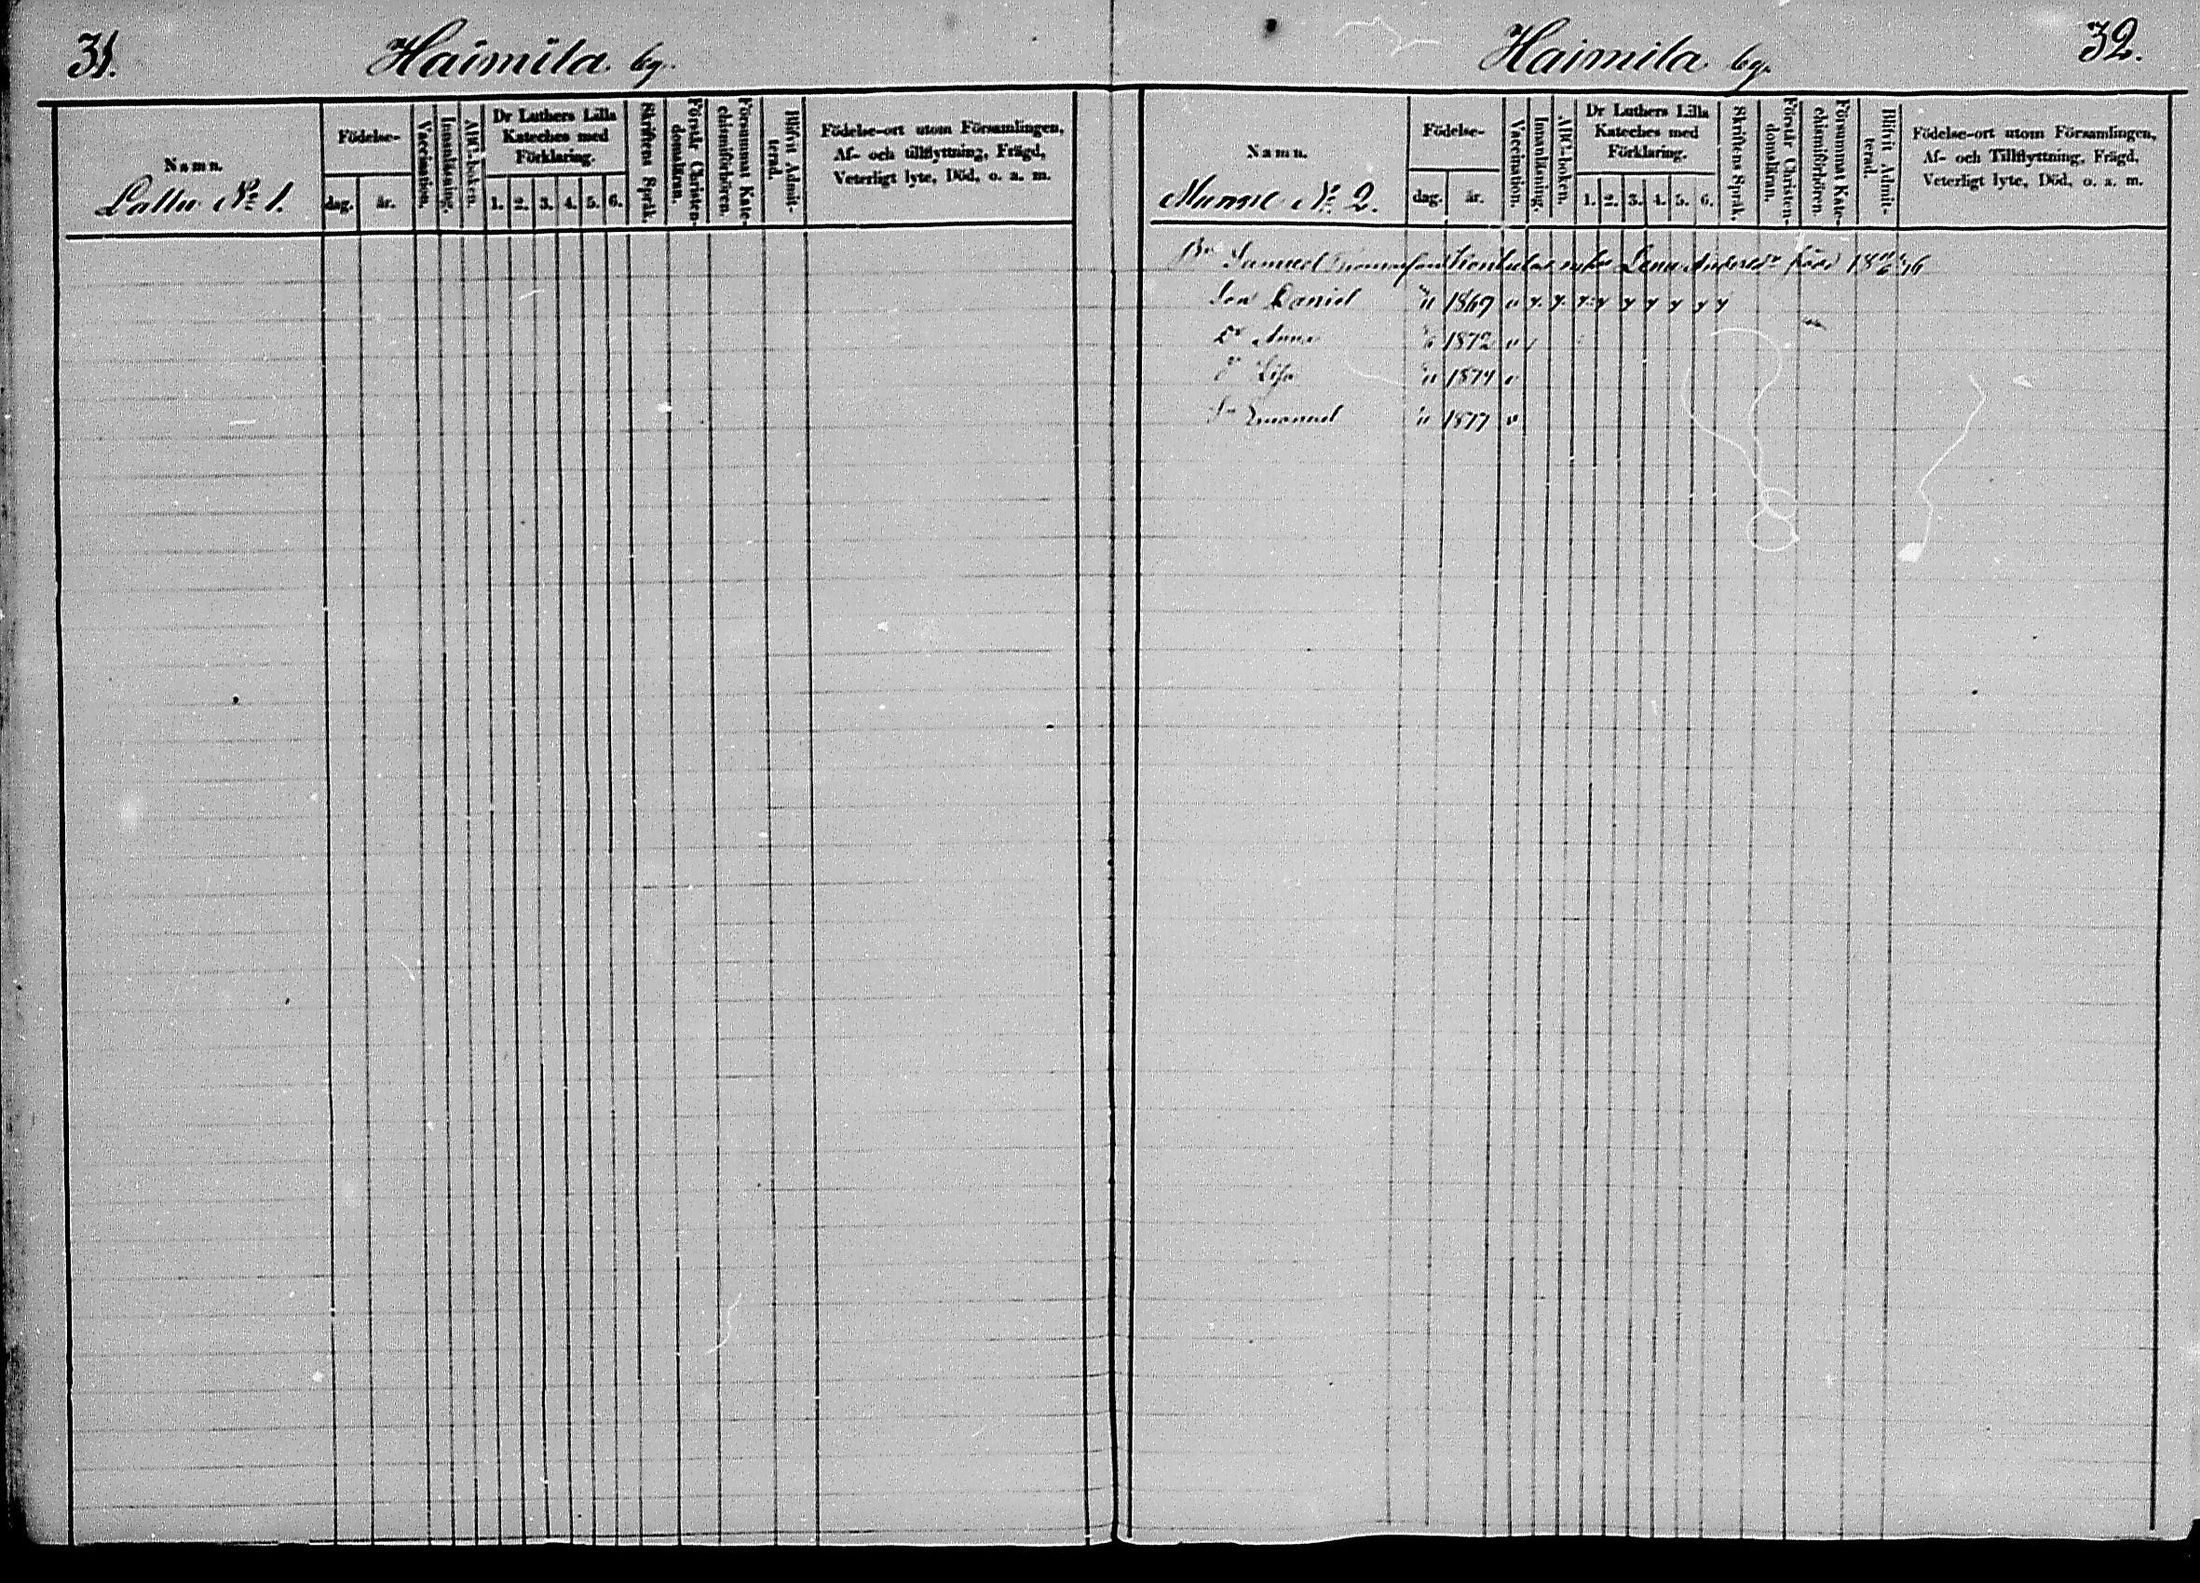 31.
Haimila by.
Namn.
Lattu No 1.
Födelse-
dag.
år.
Vaccination.
Innanläsning.
ABC-boken.
Dr Luthers Lilla
Kateches med
Förklaring.
1. 2. 3. 4. 5. 6.
Skriftens Språk.
Förstår Christen-
domsläran.
Försummat Kate-
chismiförhören.
Blifvit Admit-
terad.
Födelse-ort utom Församlingen,
Af- och tillflyttning, Frägd,
Veterligt lyte, Död, o. a. m.
Haimila by.
32.
Namn.
No 2.
Födelse-
dag.
år.
Vaccination.
Innanläsning.
ABC-boken.
Dr Luthers Lilla
Kateches med
Förklaring.
1. 2. 3. 4. 5. 6.
Skriftens Språk.
Förstår Christen-
domsläran.
Försummat Kate-
chismiförhören.
Blifvit Admit-
terad.
Födelse-ort utom Församlingen,
Af- och Tillflyttning, Frägd,
Veterligt lyte, Död, o. a. m.
Samuel Lena
Son Daniel 1869 v y. y. y. y y y y y y
Dr Anna 1872 v
Lisa 1874 v
Sn Emanuel 1877 v